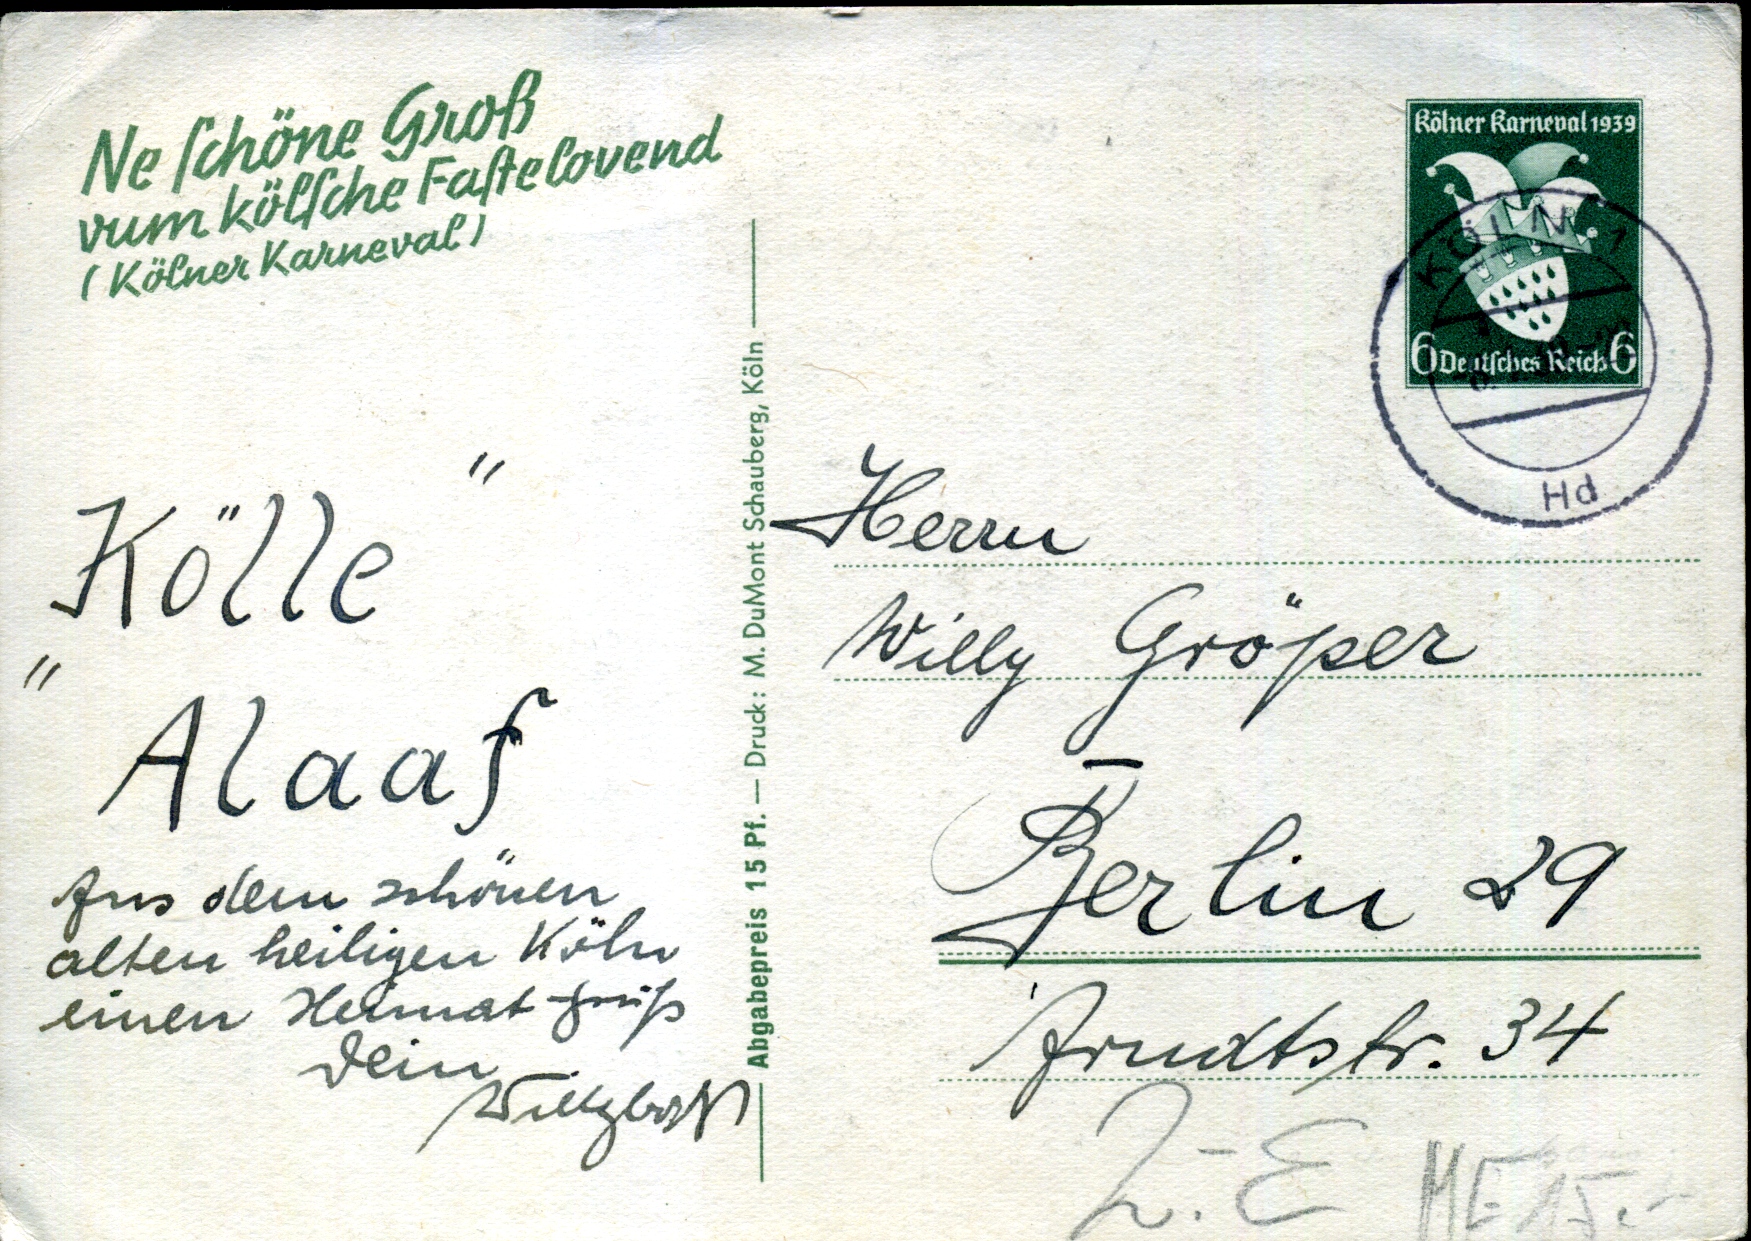 Ne schöne Groß
vum kölsche Fastelovend
(Kölner Karneval)
Kölner Karneval 1939
6 Deutsches Reich 6
KÖLN 1
Hd
"
Kölle
"
Alaaf
Aus dem schönen
alten heiligen Köln
einen Heimat gruß
Dein
Abgabepreis 15 Pf. — Druck: M. DuMont Schauberg, Köln
Herrn
Willy Gröper
Berlin 29
Arndtstr. 34
2.-E
ME 15.-